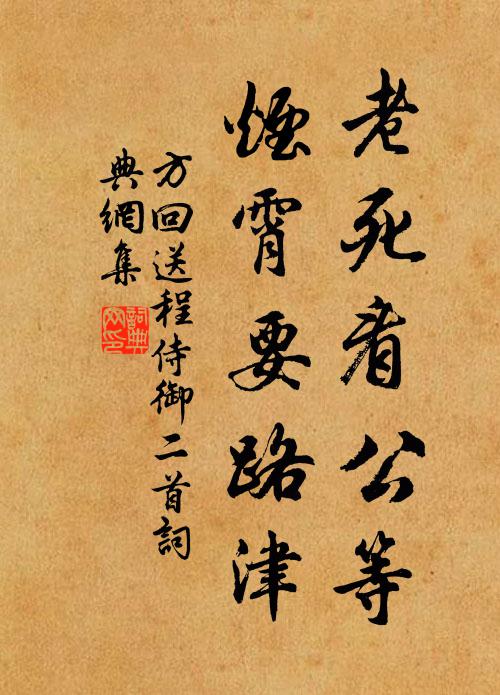 老死看公等
煙霄要路津
方回送程侍御二首詞
典網集
詞典網印